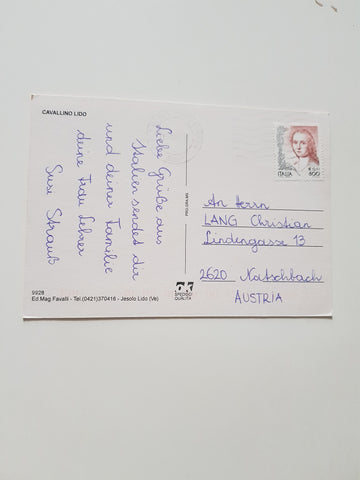 CAVALLINO LIDO
Liebe Grüße aus
Italien sendet dir
und deiner Familie
deine Frau Lehrer
Susi Strauß
ITALIA
800
An Herrn
LANG Christian
Lindengasse 13
2620 Natschbach
AUSTRIA
9928
Ed Mag Favalli - Tel.(0421)370416 - Jesolo Lido (Ve)